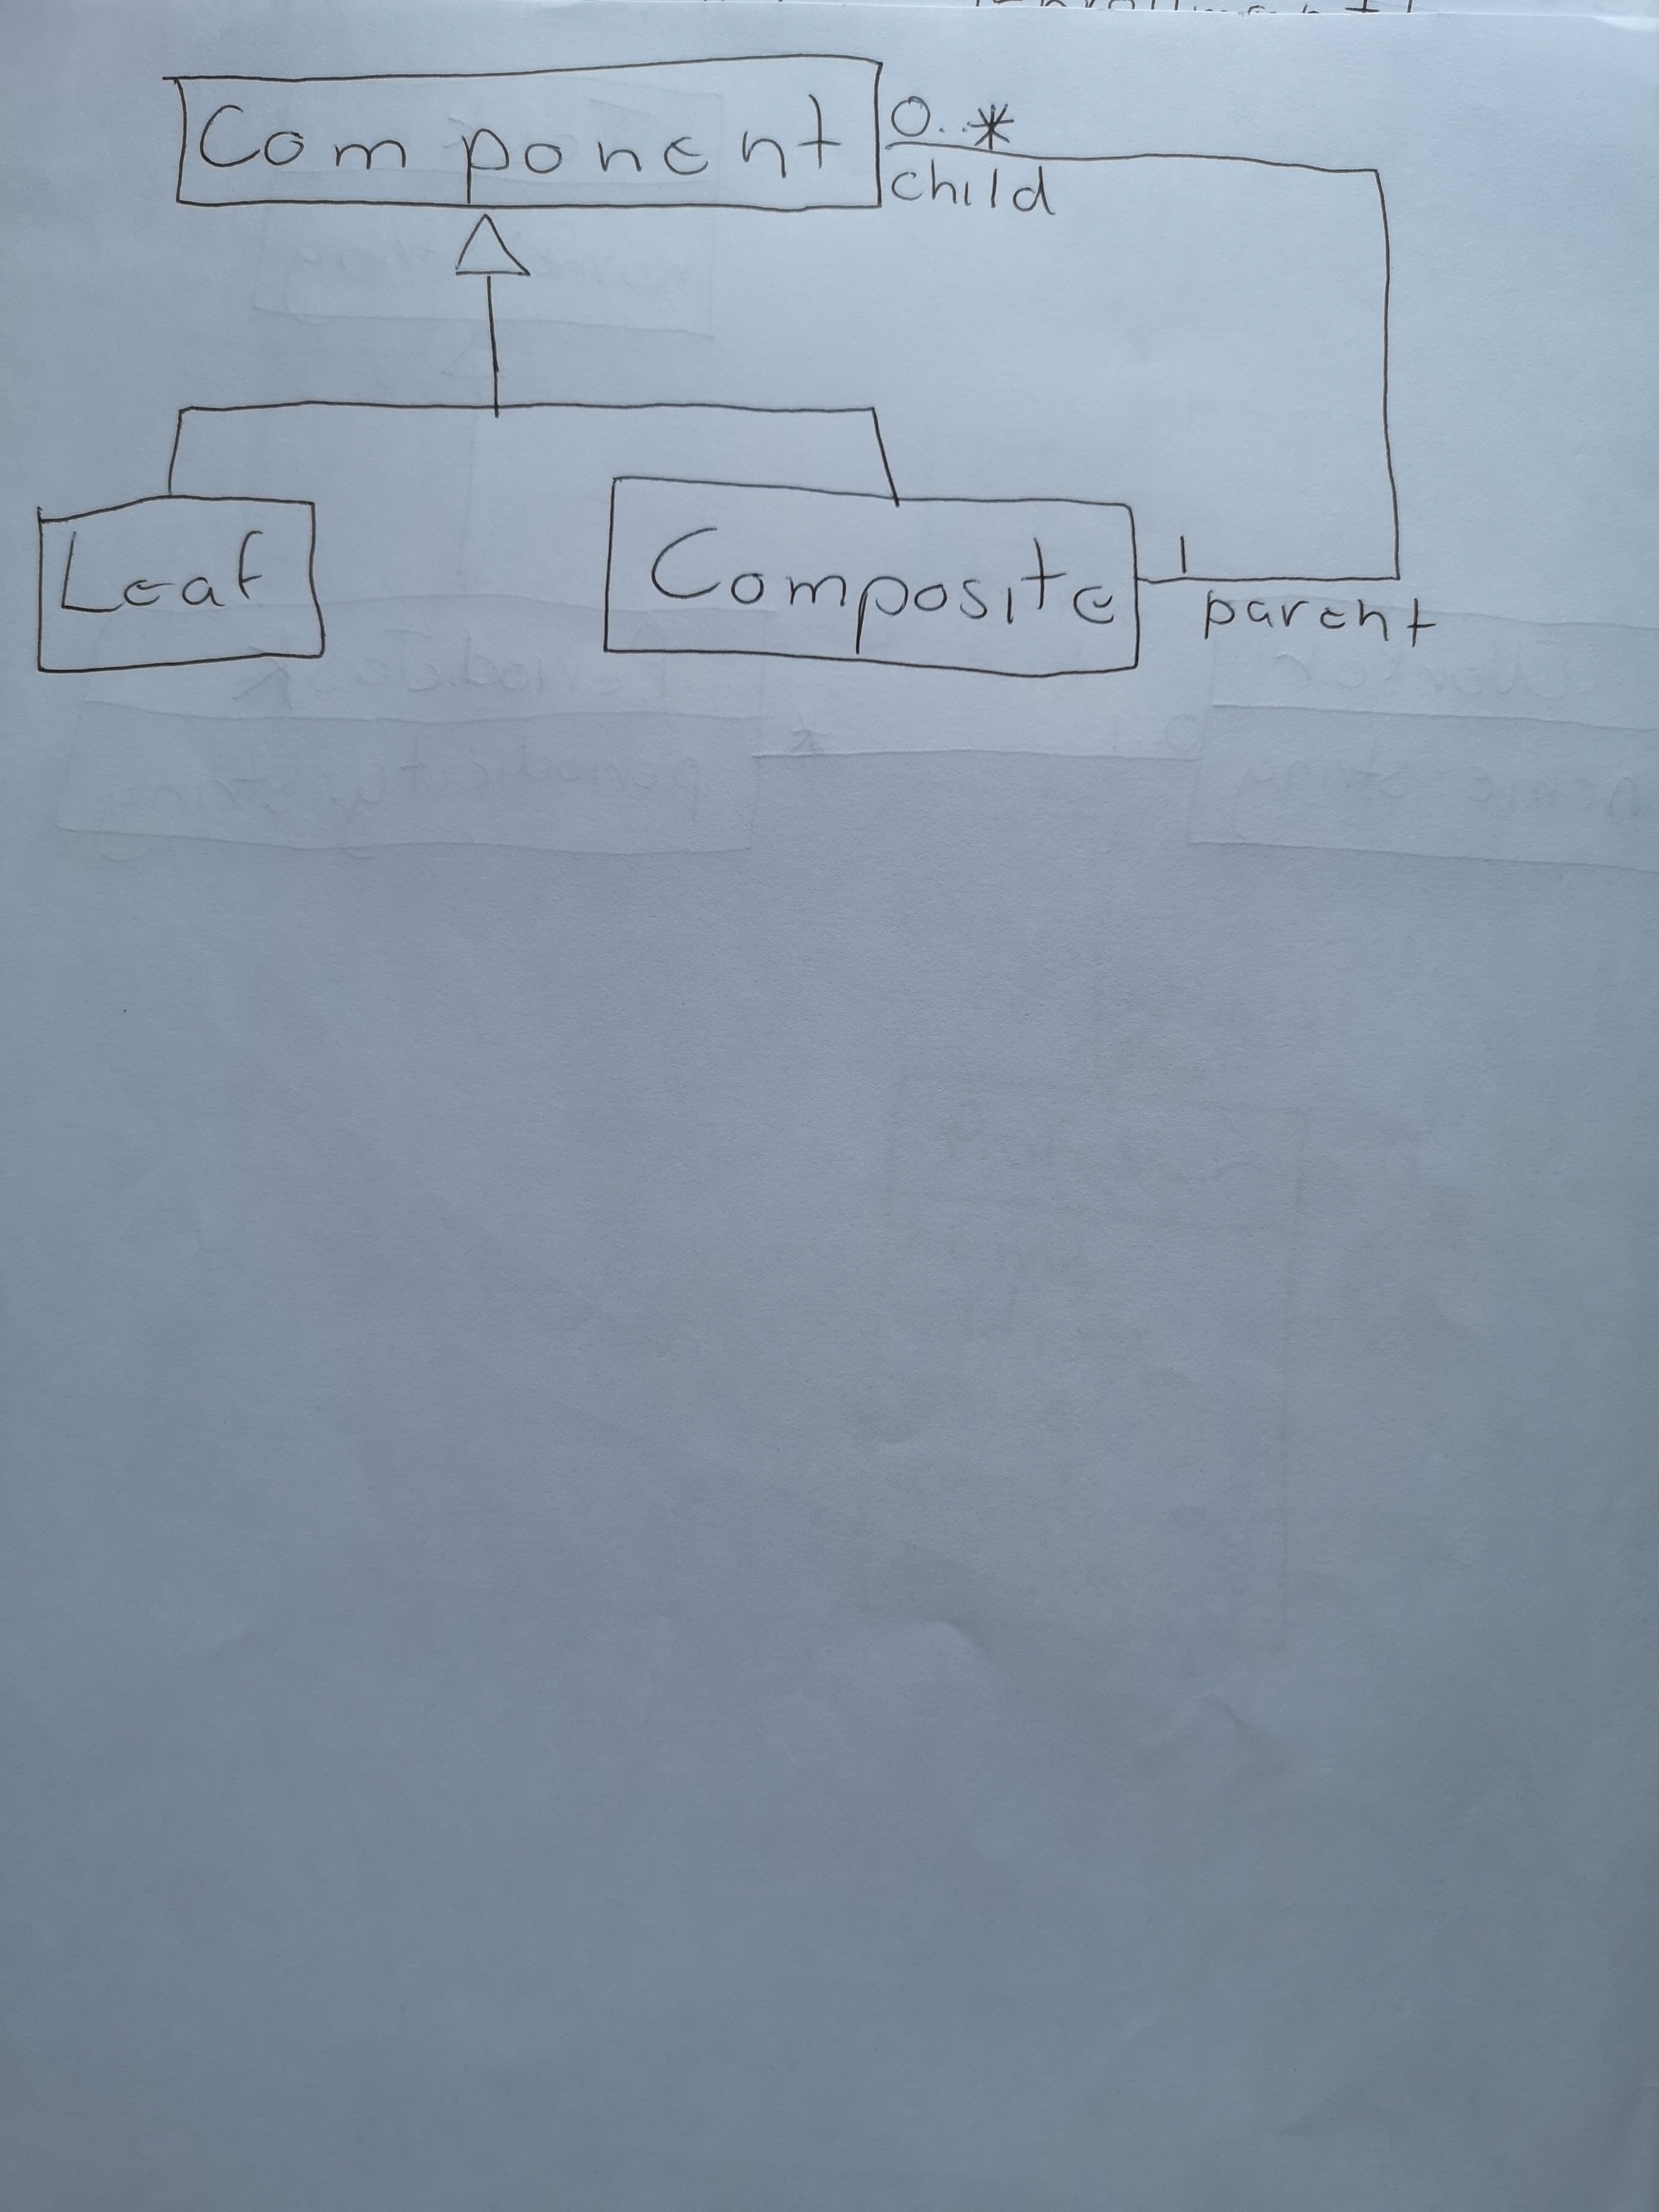 Component
0..*
child
Leaf
Composite
1
parent